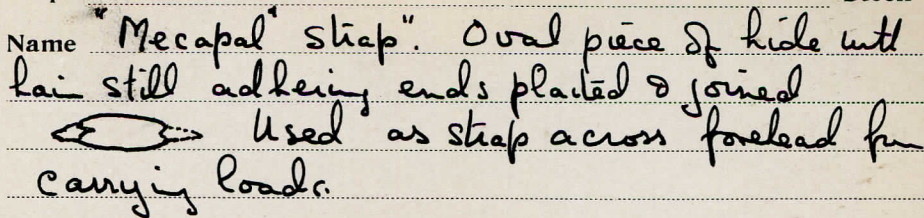 Name "Mecapal" strap". Oval piece of hide with
hair still adhering ends plaited & joined
Used as strap across forehead for
carrying loads.